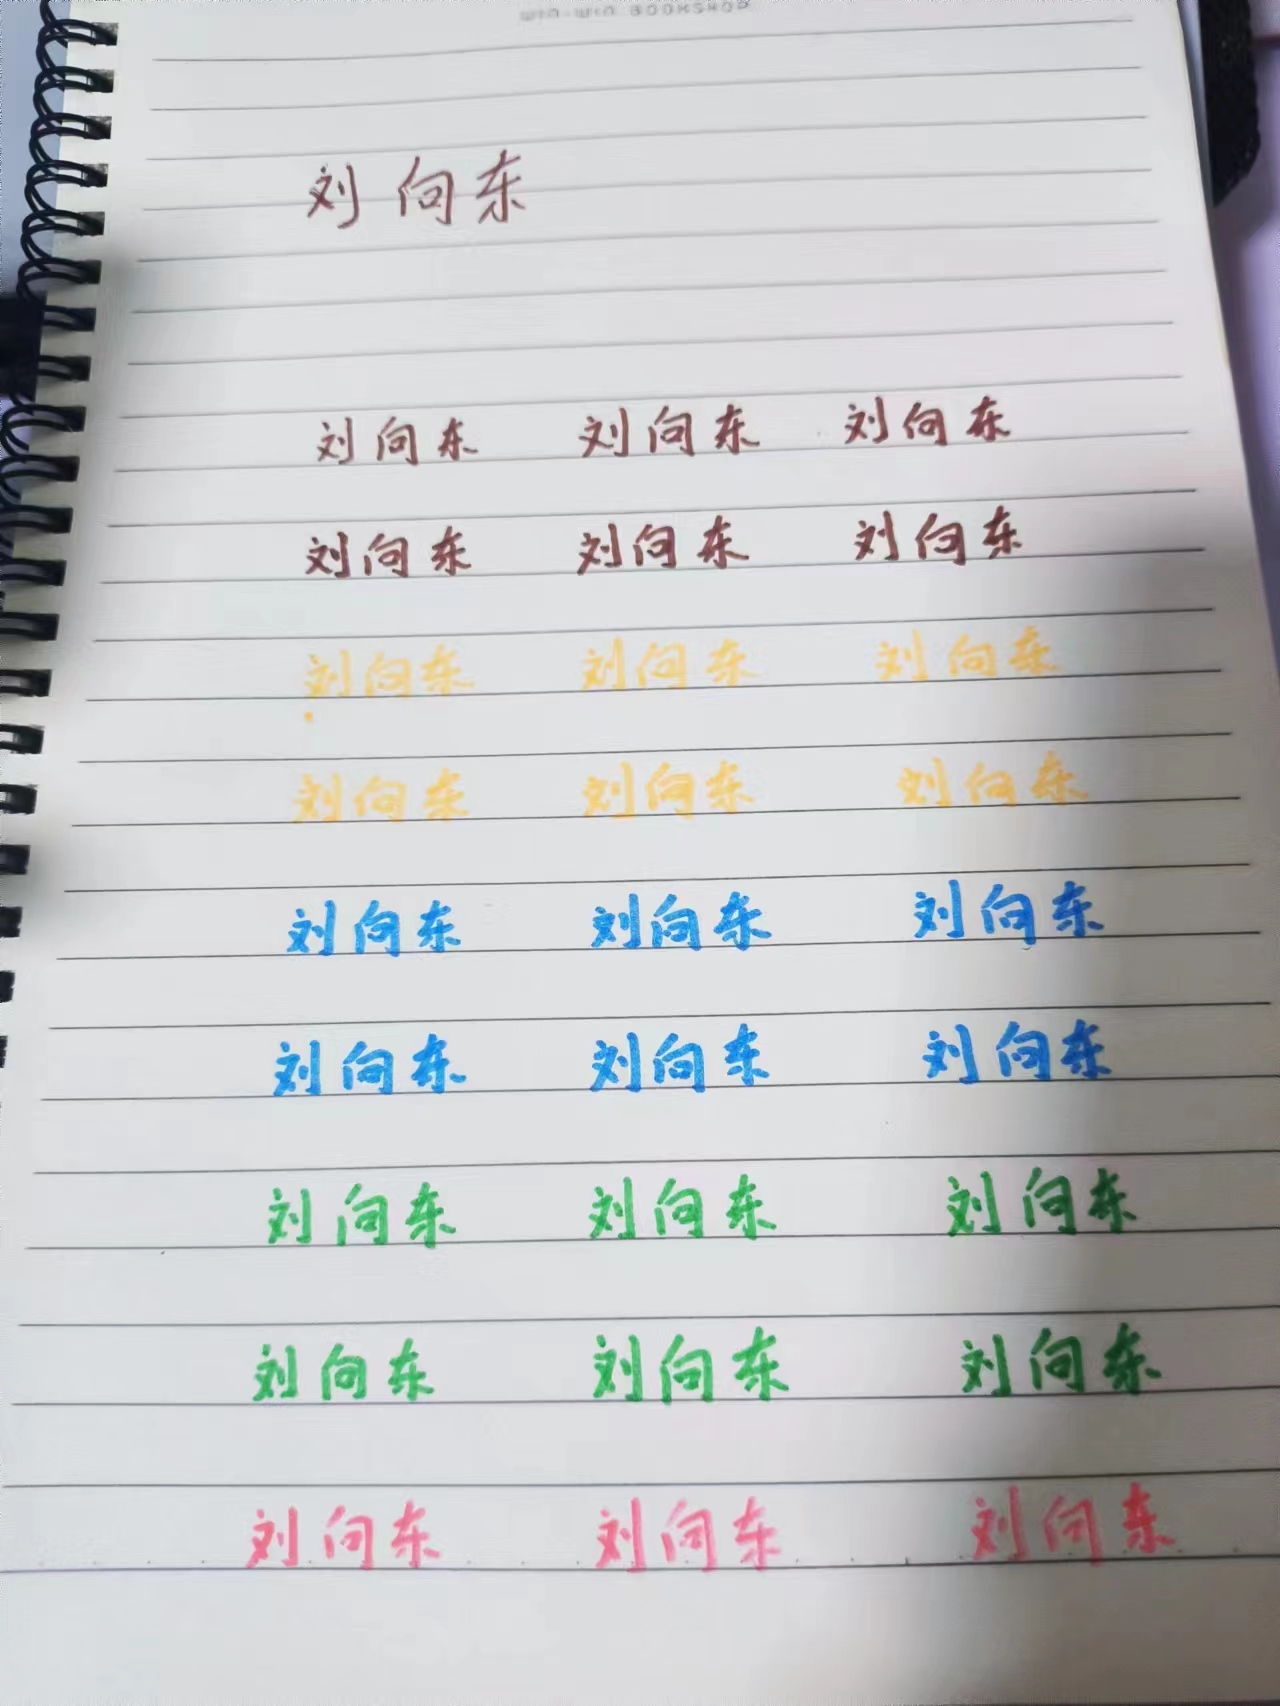 WIN-WIN BOOKSHOP
刘向东
刘向东 刘向东 刘向东
刘向东 刘向东 刘向东
刘向东 刘向东 刘向东
刘向东 刘向东 刘向东
刘向东 刘向东 刘向东
刘向东 刘向东 刘向东
刘向东 刘向东 刘向东
刘向东 刘向东 刘向东
刘向东 刘向东 刘向东